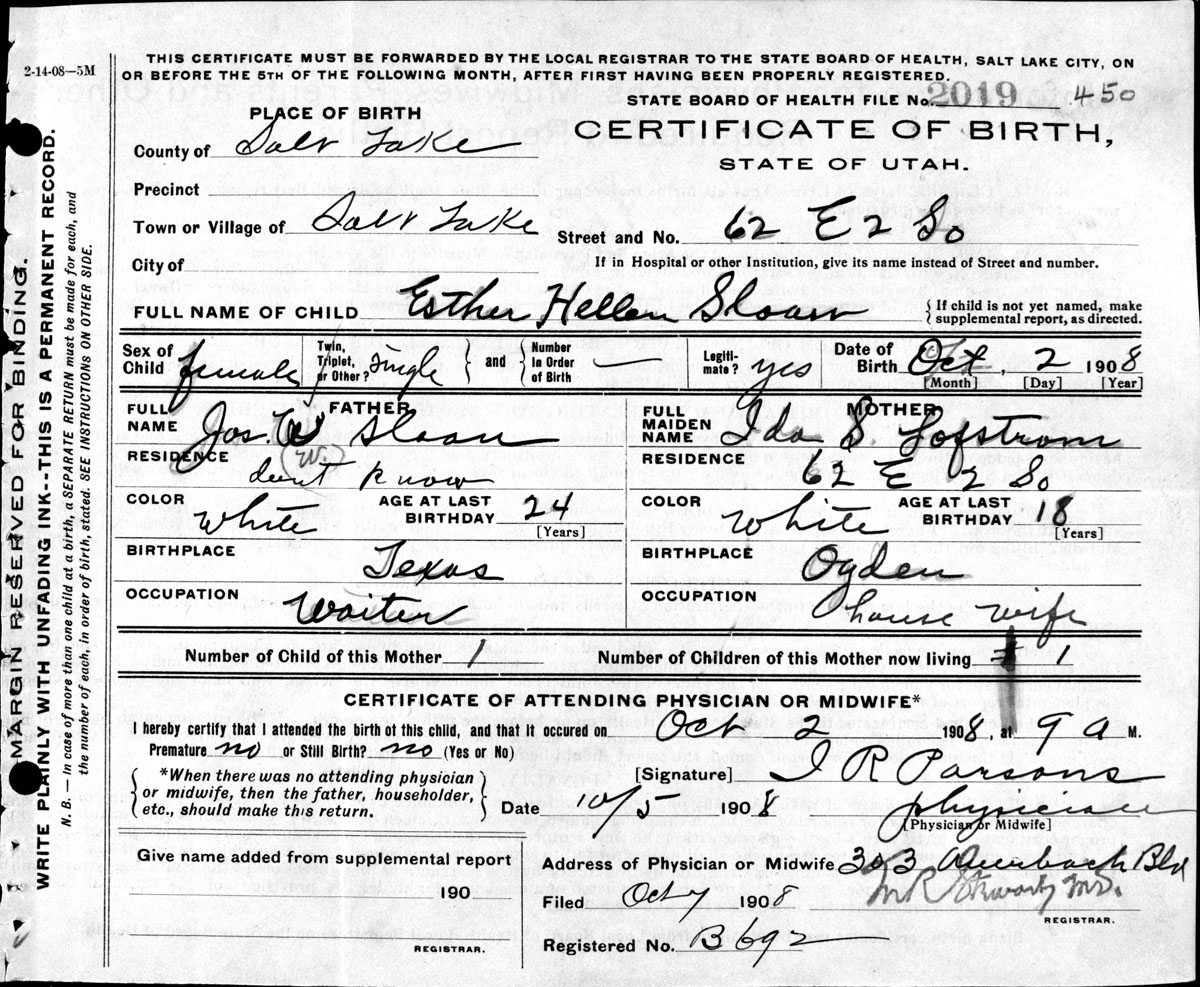 2-14-08—5M
THIS CERTIFICATE MUST BE FORWARDED BY THE LOCAL REGISTRAR TO THE STATE BOARD OF HEALTH, SALT LAKE CITY, ON
OR BEFORE THE 5TH OF THE FOLLOWING MONTH, AFTER FIRST HAVING BEEN PROPERLY REGISTERED.
STATE BOARD OF HEALTH FILE No. 2019 450
PLACE OF BIRTH
CERTIFICATE OF BIRTH,
STATE OF UTAH.
County of Salt Lake
Precinct
Town or Village of Salt Lake
Street and No. 62 E 2 So
City of
If in Hospital or other Institution, give its name instead of Street and number.
FULL NAME OF CHILD Esther Hellen Sloan
{ If child is not yet named, make
supplemental report, as directed.
Sex of Child female
Twin, Triplet, or Other? Single } and { Number in Order of Birth —
Legitimate? yes
Date of Birth Oct, 2 1908
[Month] [Day] [Year]
FATHER
FULL NAME Jos. W Sloan
W.
RESIDENCE dont know
COLOR White
AGE AT LAST BIRTHDAY 24
[Years]
BIRTHPLACE Texas
OCCUPATION Waiter
MOTHER
FULL MAIDEN NAME Ida S. Lofstrom
RESIDENCE 62 E 2 So
COLOR White
AGE AT LAST BIRTHDAY 18
[Years]
BIRTHPLACE Ogden
OCCUPATION house wife
Number of Child of this Mother 1
Number of Children of this Mother now living 1
CERTIFICATE OF ATTENDING PHYSICIAN OR MIDWIFE*
I hereby certify that I attended the birth of this child, and that it occured on Oct 2 1908, at 9 a M.
Premature no or Still Birth? no (Yes or No)
{ *When there was no attending physician
or midwife, then the father, householder,
etc., should make this return. }
[Signature] I R Parsons
Date 10/5 1908 physician
[Physician or Midwife]
Give name added from supplemental report
190
REGISTRAR.
Address of Physician or Midwife 303 Auerbach Bld
Filed Oct 7 1908
REGISTRAR.
Registered No. B692
MARGIN RESERVED FOR BINDING.
WRITE PLAINLY WITH UNFADING INK--THIS IS A PERMANENT RECORD.
N. B. — In case of more than one child at a birth, a SEPARATE RETURN must be made for each, and
the number of each, in order of birth, stated. SEE INSTRUCTIONS ON OTHER SIDE.